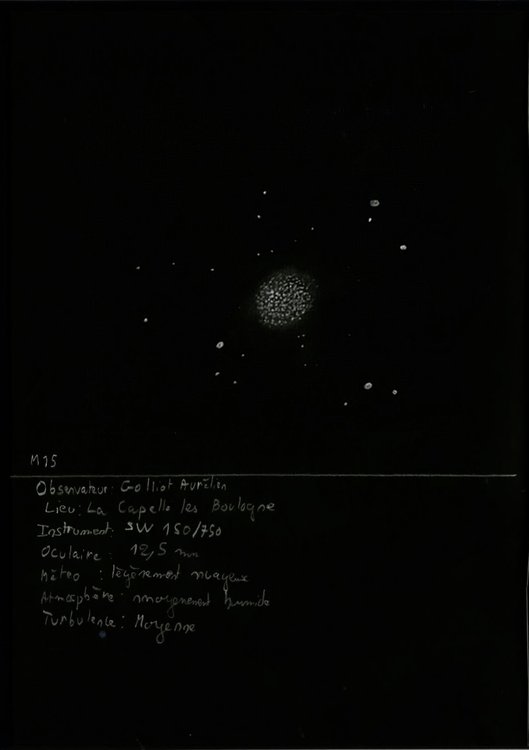 M15
Observateur: Golliot Aurélien
Lieu: La Capelle les Boulogne
Instrument: SW 150/750
Oculaire: 12,5 mm
Météo: légèrement nuageux
Atmosphère: moyennement humide
Turbulence: Moyenne